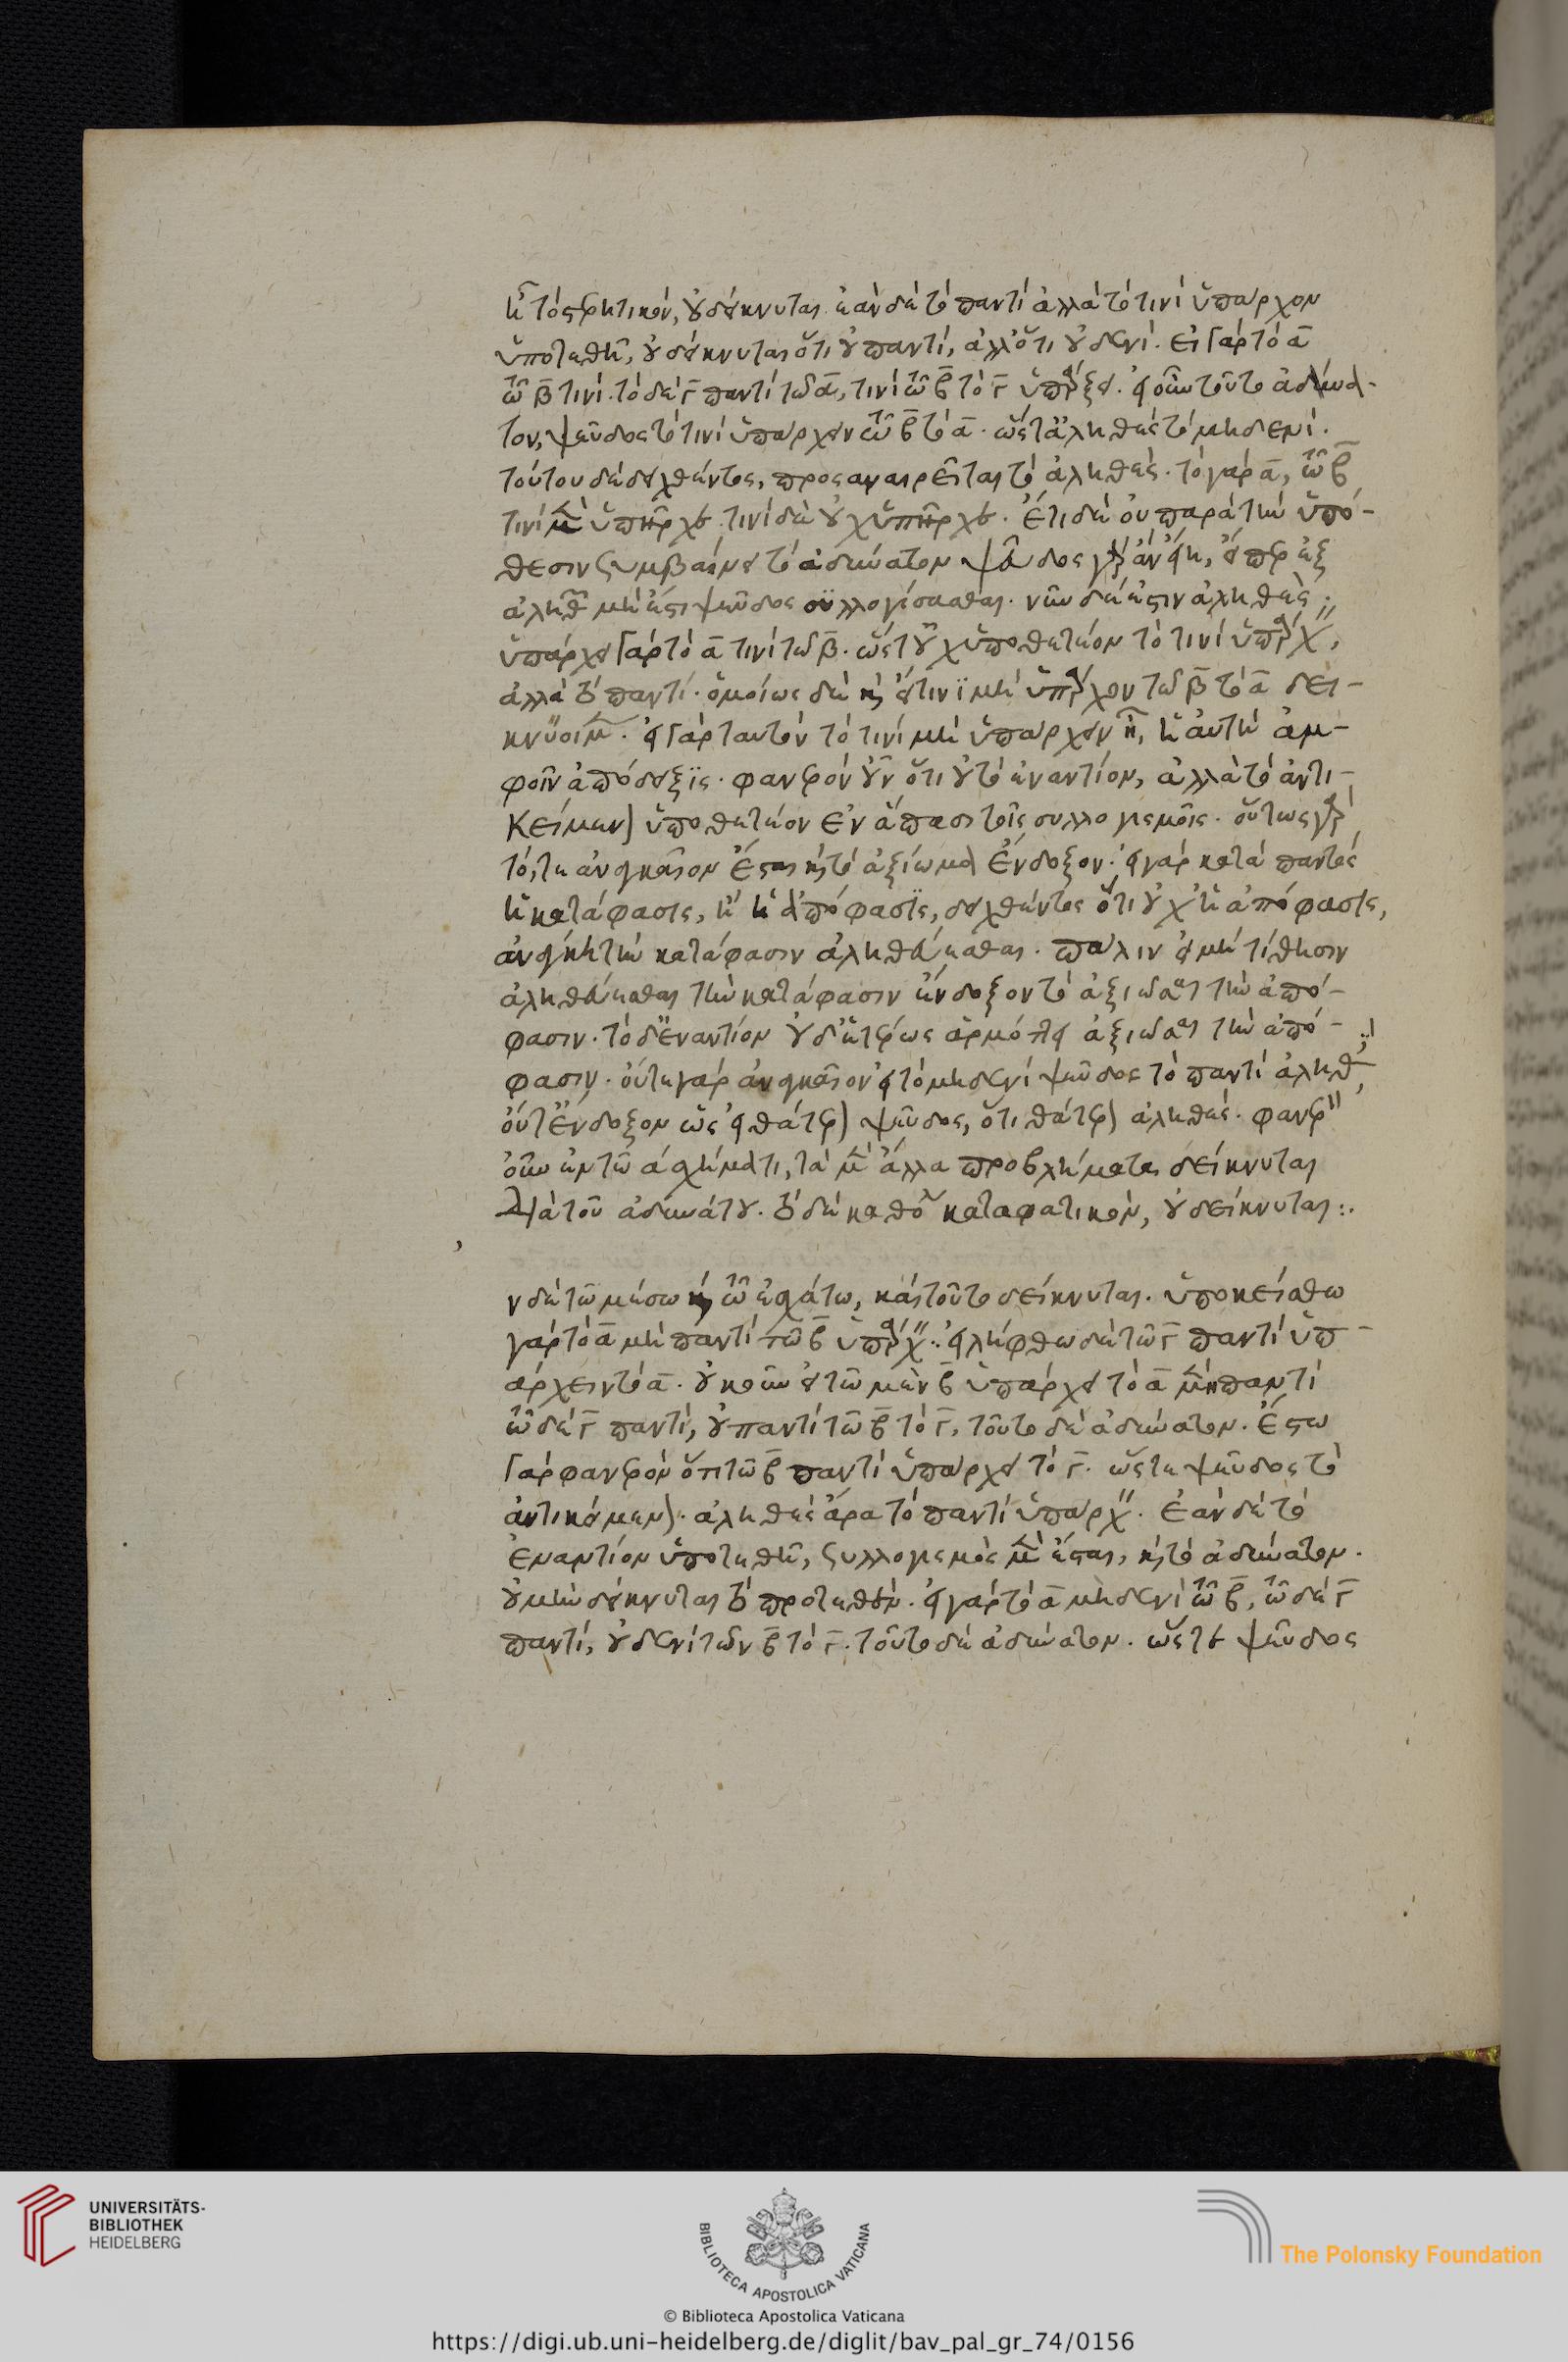 ἢ τὸ στερητικόν, οὐ δείκνυται. ἐὰν δὲ τὸ παντὶ ἀλλὰ τὸ τινὶ ὑπάρχον
ὑποτεθῇ, οὐ δείκνυται ὅτι οὐ παντί, ἀλλ' ὅτι οὐδενί. εἰ γὰρ τὸ α
τῷ β τινί. τὸ δὲ γ παντὶ τῶ α, τινὶ τῷ β τὸ γ ὑπάρξει. εἰ οὖν τοῦτο ἀδύνα-
τον, ψεῦδος τὸ τινὶ ὑπάρχειν τῷ β τὸ α. ὥστ' ἀληθὲς τὸ μηδενί.
τούτου δὲ δειχθέντος, προσαναιρεῖται τὸ ἀληθές. τὸ γὰρ α, τῷ β
τινὶ μὲν ὑπῆρχε. τινὶ δὲ οὐχ ὑπῆρχε. Ἔτι δὲ οὐ παρὰ τὴν ὑπό-
θεσιν συμβαίνει τὸ ἀδύνατον ψεῦδος γὰρ ἂν εἴη, εἴπερ ἐξ
ἀληθῶν μὴ ἔστι ψεῦδος συλλογίσασθαι. νῦν δέ ἐστιν ἀληθές·
ὑπάρχει γὰρ τὸ α τινὶ τῶ β. ὥστ' οὐχ ὑποθετέον τὸ τινὶ ὑπάρχειν,
ἀλλὰ τὸ παντί. ὁμοίως δὲ καὶ εἰ τινὶ μὴ ὑπάρχον τῶ β τὸ α δει-
κνύοιμεν. εἰ γὰρ ταυτὸν τὸ τινὶ μὴ ὑπάρχειν καὶ, ἡ αὐτὴ ἀμ-
φοῖν ἀπόδειξις. φανερὸν οὖν ὅτι οὐ τὸ ἐναντίον, ἀλλὰ τὸ ἀντι-
κείμενον ὑποθετέον ἐν ἅπασι τοῖς συλλογισμοῖς. οὕτως γὰρ
τό, τε ἀναγκαῖον ἔσται καὶ τὸ ἀξίωμα ἔνδοξον. εἰ γὰρ κατὰ παντὸς
ἢ κατάφασις, ἢ ἡ ἀπόφασις, δειχθέντος ὅτι οὐχ ἡ ἀπόφασις,
ἀνάγκη τὴν κατάφασιν ἀληθεύεσθαι. πάλιν εἰ μὴ τίθησιν
ἀληθεύεσθαι τὴν κατάφασιν ἔνδοξον τὸ ἀξιῶσαι τὴν ἀπό-
φασιν. τὸ δ' ἐναντίον οὐδετέρως ἁρμόττει ἀξιῶσαι τὴν ἀπό-
φασιν. οὔτε γὰρ ἀναγκαῖον εἰ τὸ μηδενὶ ψεῦδος τὸ παντὶ ἀληθές,
οὔτ' ἔνδοξον ὡς εἰ θάτερον ψεῦδος, ὅτι θάτερον ἀληθές. φανερὸν
οὖν ἐν τῷ α σχήματι, τὰ μὲν ἄλλα προβλήματα δείκνυται
διὰ τοῦ ἀδυνάτου. τὸ δὲ καθόλου καταφατικόν, οὐ δείκνυται:.
ν δὲ τῷ μέσω καὶ τῷ ἐσχάτω, καὶ τοῦτο δείκνυται. ὑποκείσθω
γὰρ τὸ α μὴ παντὶ τῷ β ὑπάρχειν. εἰλήφθω δὲ τῷ γ παντὶ ὑπ-
άρχειν τὸ α. οὐκοῦν εἰ τῷ μὲν β ὑπάρχει τὸ α μὴ παντὶ
τῷ δὲ γ παντί, οὐ παντὶ τῷ β τὸ γ. τοῦτο δὲ ἀδύνατον. Ἔστω
γὰρ φανερὸν ὅτι τῷ β παντὶ ὑπάρχει τὸ γ. ὥστε ψεῦδος τὸ
ἀντικείμενον. ἀληθὲς ἄρα τὸ παντὶ ὑπάρχειν. Ἐὰν δὲ τὸ
ἐναντίον ὑποτεθῇ, συλλογισμὸς μὲν ἔσται, καὶ τὸ ἀδύνατον.
οὐ μὴν δείκνυται τὸ προτεθέν. εἰ γὰρ τὸ α μηδενὶ τῷ β, τῷ δὲ γ
παντί, οὐδενὶ τῶν β τὸ γ. τοῦτο δὲ ἀδύνατον. ὥστε ψεῦδος
UNIVERSITÄTS-
BIBLIOTHEK
HEIDELBERG
BIBLIOTECA APOSTOLICA VATICANA
The Polonsky Foundation
© Biblioteca Apostolica Vaticana
https://digi.ub.uni-heidelberg.de/diglit/bav_pal_gr_74/0156